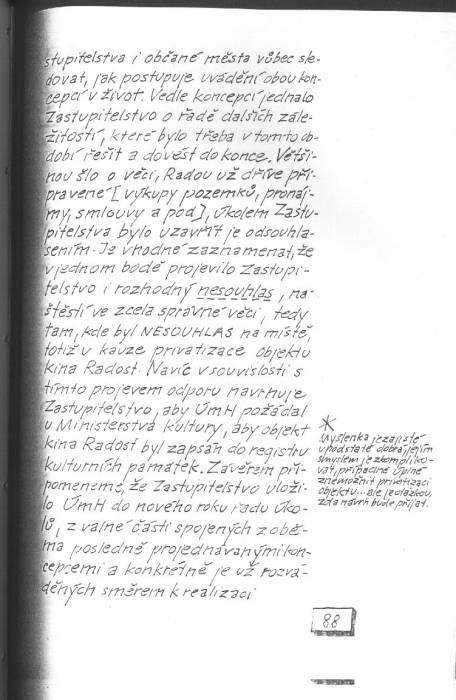 stupitelstva i občané města vůbec sle-
dovat, jak postupuje uvádění obou kon-
cepcí v život. Vedle koncepcí jednalo
Zastupitelstvo o řadě dalších zále-
žitostí, které bylo třeba v tomto ob-
dobí řešit a dovést do konce. Větši-
nou šlo o věci, Radou už dříve při-
pravené [výkupy pozemků, pronáj-
my, smlouvy a pod], úkolem Zastu-
pitelstva bylo uzavřít je odsouhla-
sením. Je vhodné zaznamenat, že
v jednom bodě projevilo Zastupi-
telstvo i rozhodný nesouhlas, na-
štěstí ve zcela správné věci, tedy
tam, kde byl NESOUHLAS na místě,
totiž v kauze privatizace objektu
kina Radost. Navíc v souvislosti s
tímto projevem odporu navrhuje
Zastupitelstvo, aby ÚmH požádal
u Ministerstva kultury, aby objekt
kina Radost byl zapsán do registru
kulturních památek. Závěrem při-
pomeneme, že Zastupitelstvo uloži-
lo ÚmH do nového roku řadu úko-
lů, z valné části spojených z obě-
ma posledně projednávanými kon-
cepcemi a konkrétně je už rozvá-
děných směrem k realizaci
*
Myšlenka je zajisté
v podstatě dobrá, jejím
smyslem je zkompliko-
vat, případně úplně
znemožnit privatizaci
objektu... ale je otázkou,
zda návrh bude přijat.
88